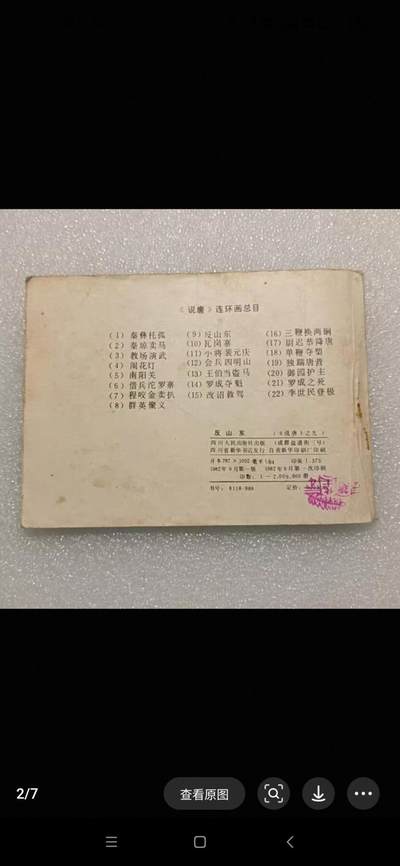 《说唐》连环画总目
(1) 秦彝托孤
(2) 秦琼卖马
(3) 教场演武
(4) 闹花灯
(5) 南阳关
(6) 借兵沱罗寨
(7) 程咬金卖扒
(8) 群英聚义
(9) 反山东
(10) 瓦岗寨
(11) 小将裴元庆
(12) 会兵四明山
(13) 王伯当盗马
(14) 罗成夺魁
(15) 改诏救驾
(16) 三鞭换两锏
(17) 尉迟恭降唐
(18) 单鞭夺槊
(19) 独踹唐营
(20) 御园护主
(21) 罗成之死
(22) 李世民登极
反山东 (《说唐》之九)
四川人民出版社出版 (成都盐道街三号)
四川省新华书店发行 自贡新华印刷厂印刷
开本787×1092毫米1/64 印张1.375
1982年9月第一版 1982年9月第一次印刷
书号: 8118·986 定价:
2/7
查看原图